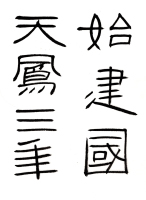 始建國
天鳳三年